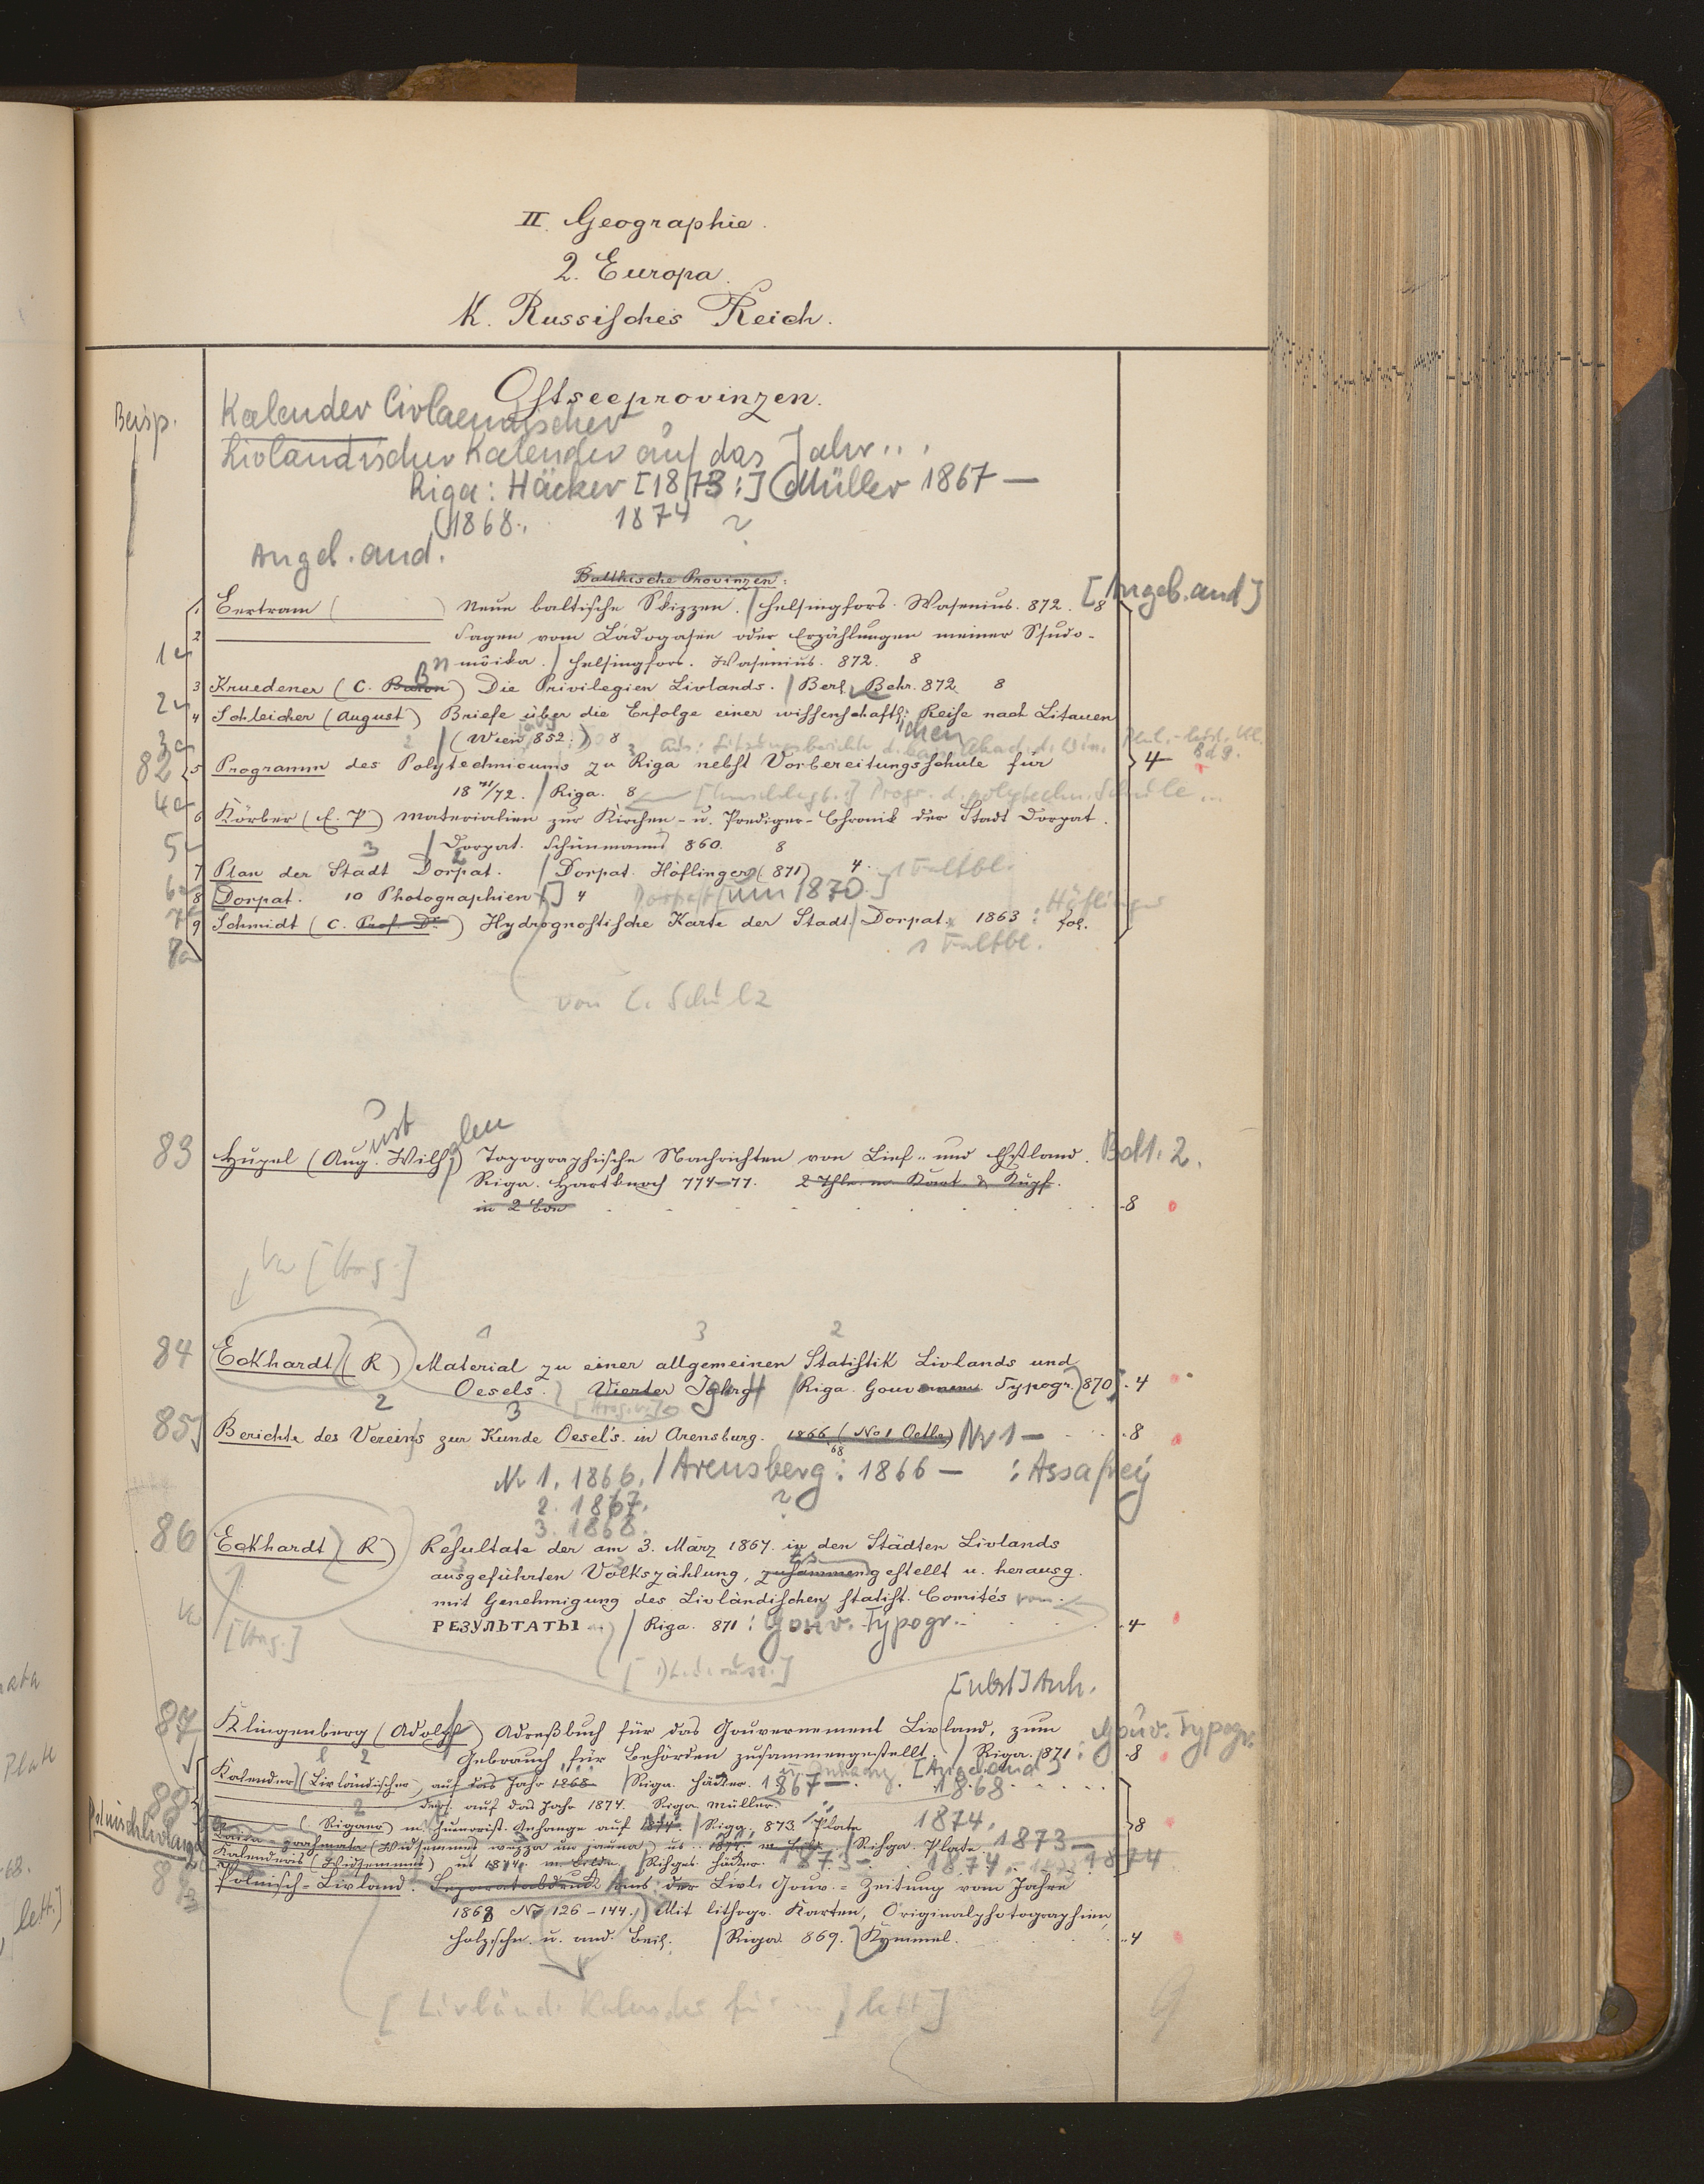 II. Geographie.
2. Europa.
K. Russisches Reich.
Ostseeprovinzen.
Beisp.
Kalender Livlaendischer
Livländischer Kalender auf das Jahr...
Riga: Häcker [1873:] Müller 1867 —
(1868. 1874 ?
Angeb. and.
Balthische Provinzen:
[Angeb. and]
1 Bertram ( ) Neue baltische Skizzen. / Helsingfors. Wasenius. 872. 8
2 Sagen vom Ladogasee oder Erzählungen meiner Studo-
1a
möika. / Helsingfors. Wasenius. 872. 8
3 Kruedener (C. Baron) Die Privilegien Livlands. / Berl. Behr. 872 8
2a
4 Schleicher (August) Briefe über die Erfolge einer wissenschaftl. Reise nach Litauen
ichen
3a
(Wien 852.) 8 Aus: Sitzungsberichte d. Kais. Akad. d. Wiss. Phil.-hist. Kl.
8 d 9.
82 5 Programm des Polytechnicums zu Riga nebst Vorbereitungsschule für 4
18 71/72. / Riga. 8 [Umschlagt.:] Progr. d. polytechn. Schule ...
4a
6 Körber (E. P) Materialien zur Kirchen- u. Prediger-Chronik der Stadt Dorpat.
5
/ Dorpat. Schünmann 860. 8
7 Plan der Stadt Dorpat. / Dorpat. Höflinger (871) 4. 1 Faltbl.
6a
8 Dorpat. 10 Photographien [] 4 Dorpat [um 1870.]
7a
9 Schmidt (C. Prof. Dr.) Hydrognostische Karte der Stadt / Dorpat. 1863: Höflinger fol.
8a
1 Faltbl.
von C. Schulz
83 Hupel (Aug. Wilh.) Topographische Nachrichten von Lief- und Ehstland. Bd 1. 2.
ust
Riga. Hartknoch 774–77. 2 Thle. m. Kart. & Kupf.
in 2 Bdn 8
Va [Hrsg.]
1 3 2
84 Eckhardt (R) Material zu einer allgemeinen Statistik Livlands und
Oesels. Vierter Jahrg / Riga. Gouvernem. Typogr. 870. 4
[Hrsg. v.]
2 3
85 Berichte des Vereins zur Kunde Oesel's in Arensburg. 1866 (No 1 Octbr) Nr 1 — 8
Nr 1. 1866. / Arensberg: 1866 — : Assafrey
2. 1867. ?
3. 1868.
86 Eckhardt (R) Resultate der am 3. März 1867. in den Städten Livlands
ausgeführten Volkszählung, zusammengestellt u. herausg.
mit Genehmigung des Livländischen statist. Comités von
РЕЗУЛЬТАТЫ / Riga. 871: Gouv. Typogr. 4
Va
[Hrsg.]
[Dt. u. russ.]
[nebst] Anh.
87 Klingenberg (Adolph) Adreßbuch für das Gouvernement Livland, zum : Gouv. Typogr.
Gebrauch für Behörden zusammengestellt. / Riga. 871: 8
Kalender (Livländischer) auf das Jahr 1868 / Riga. Häcker. 1867 — [Angeb. and] 1868
88
ders. auf das Jahr 1874. Riga. Müller.
( Rigaer) m. humorist. Anhange auf 1874. / Riga, 873. Plate 1874. 8
Polnischlivland
grahmata (Widsemmes wezza un jauna) us 1874. / Rihga. Plate. 1873 —
Kalenderis (Widsemmes) us 1874. / Rihga. Häcker. 1873 — 1874. 1874
89 Polnisch-Livland. Separatabdruck aus der Livl. Gouv.-Zeitung vom Jahre
1868 No 126–144. Mit lithogr. Karten, Originalphotographien,
Holzschn. u. and. Beil. / Riga. 869. Kymmel. 4
[Livländ. Kalender für ... lett]
9